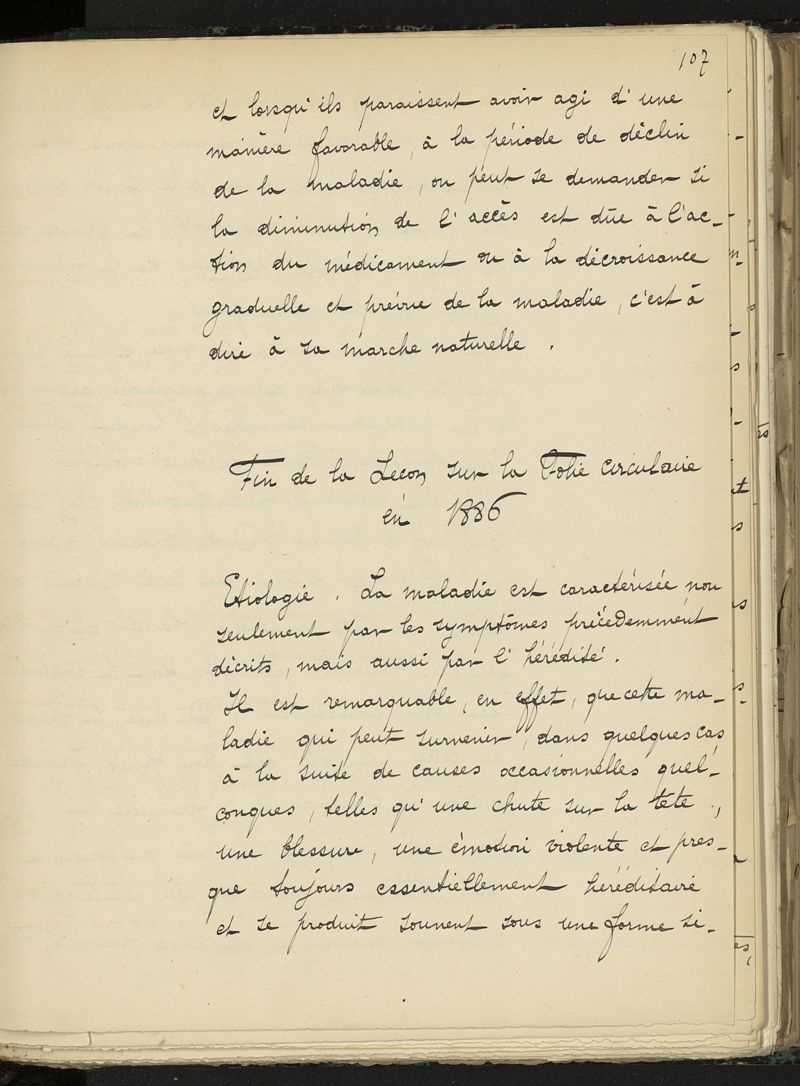 107
et lorsqu'ils paraissent avoir agi d'une
manière favorable, à la période de déclin
de la maladie, on peut se demander si
la diminution de l'accès est dûe à l'ac-
tion du médicament ou à la décroissance
graduelle et prévue de la maladie, c'est à
dire à sa marche naturelle.
Fin de la Leçon sur la Folie circulaire
en 1886
Etiologie. La maladie est caractérisée non
seulement par les symptômes précédemment
décrits, mais aussi par l'hérédité.
Il est remarquable, en effet, que cette ma-
ladie qui peut survenir, dans quelques cas
à la suite de causes occasionnelles quel-
conques, telles qu'une chute sur la tête,
une blessure, une émotion violente et pres-
que toujours essentiellement héréditaire
et se produit souvent sous une forme si-